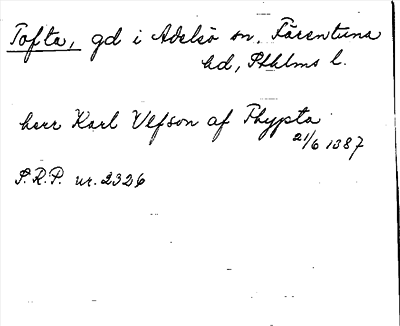 Tofta, gd i Adelsö sn, Färentuna
hd, Sthlms l.
herr Karl Ulfson af Thypta
21/6 1387
S.R.P. nr. 2326